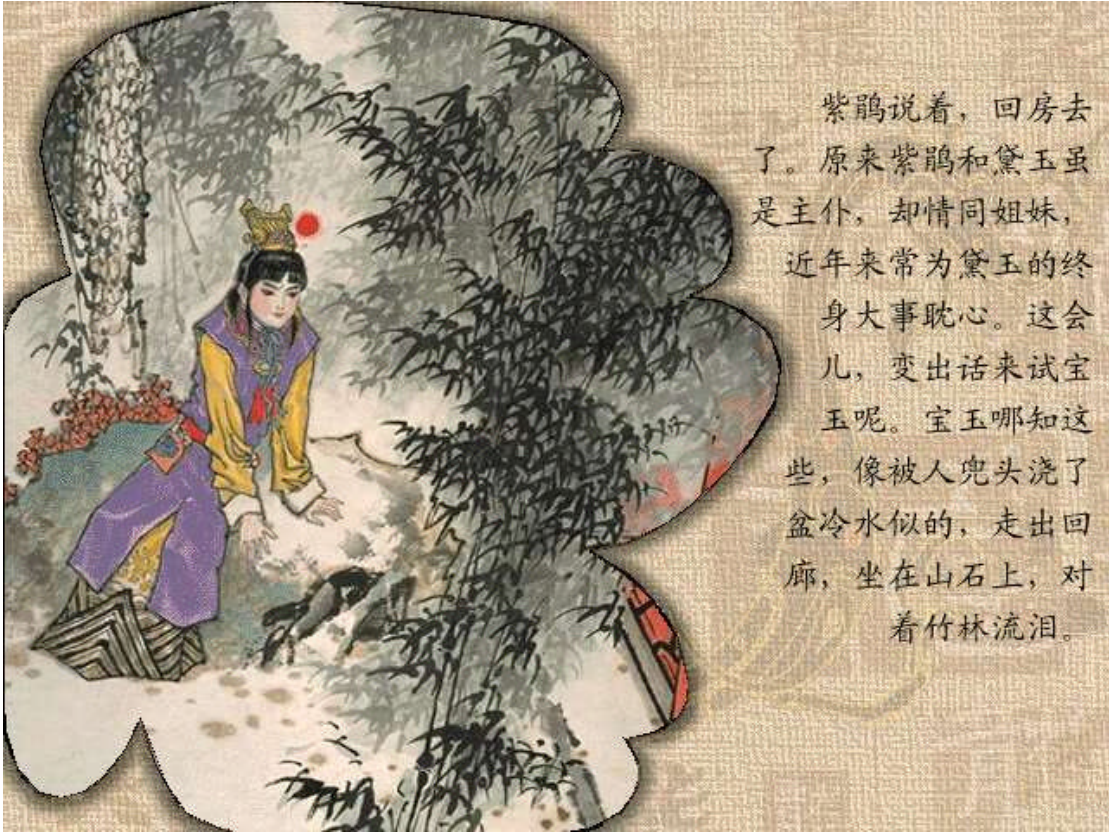 紫鹃说着，回房去
了。原来紫鹃和黛玉虽
是主仆，却情同姐妹，
近年来常为黛玉的终
身大事耽心。这会
儿，变出话来试宝
玉呢。宝玉哪知这
些，像被人兜头浇了
盆冷水似的，走出回
廊，坐在山石上，对
着竹林流泪。